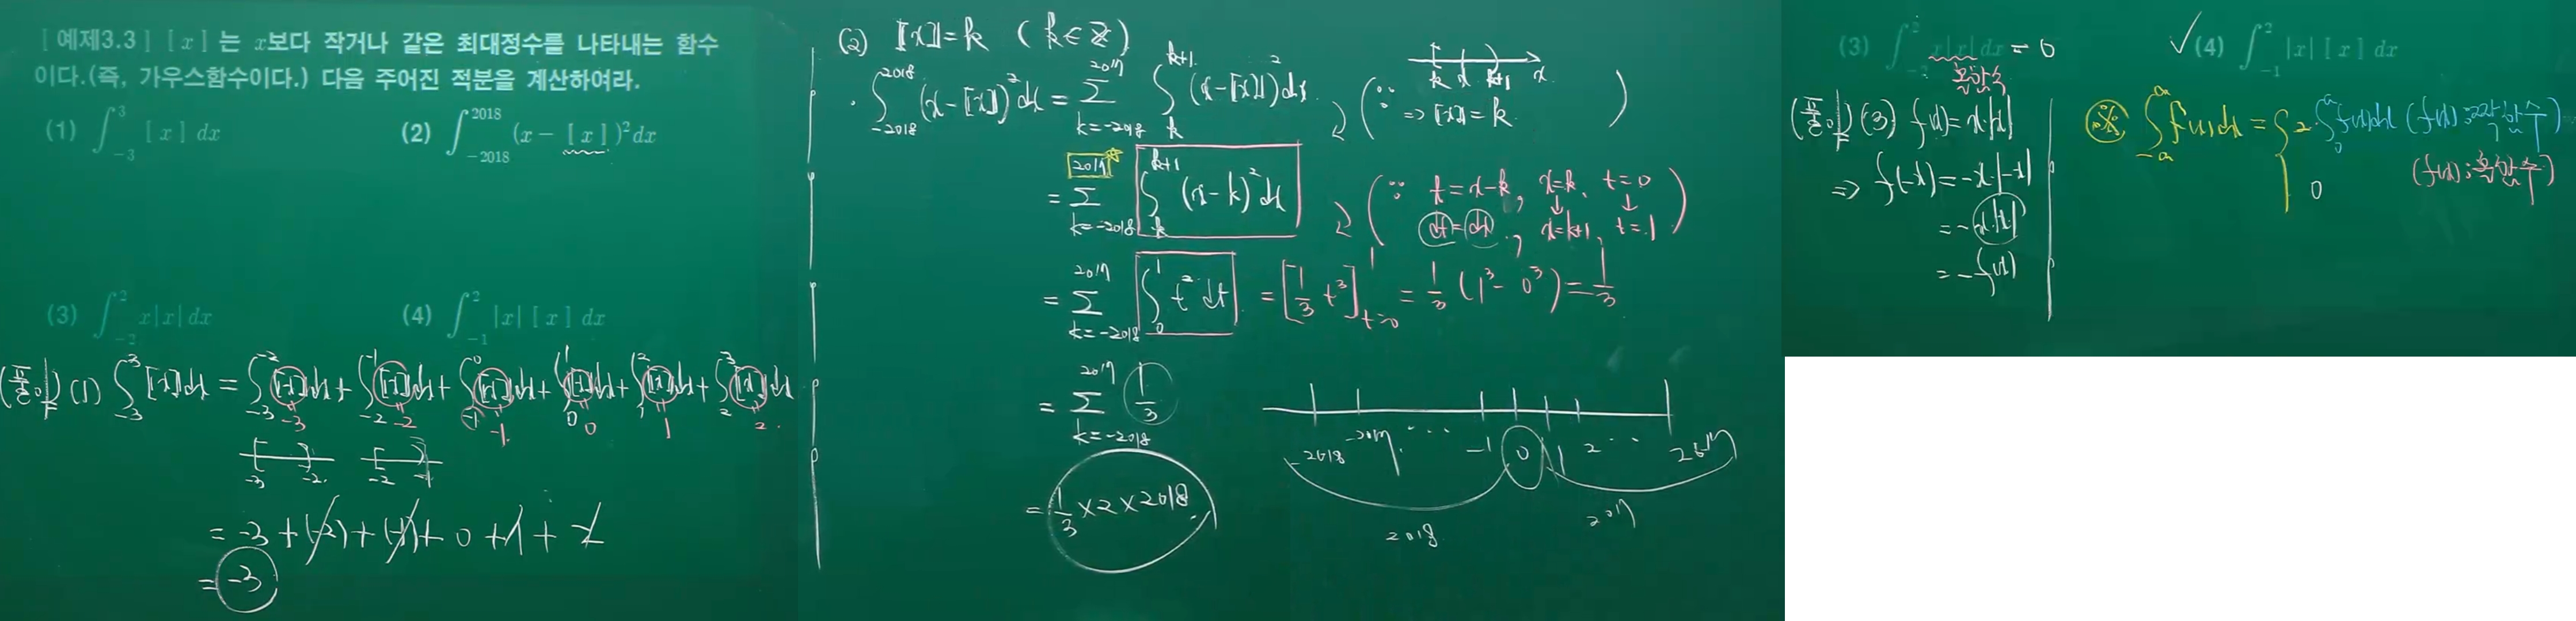 [ 예제3.3 ] [ x ] 는 x보다 작거나 같은 최대정수를 나타내는 함수
이다.(즉, 가우스함수이다.) 다음 주어진 적분을 계산하여라.
(1) ∫_{-3}^{3} [ x ] dx
(2) ∫_{-2018}^{2018} (x - [ x ] )² dx
(3) ∫_{-2}^{2} x|x| dx
(4) ∫_{-1}^{2} |x| [ x ] dx
(풀이) (1) ∫_{-3}^{3} [x]dx = ∫_{-3}^{-2} [x]dx + ∫_{-2}^{-1} [x]dx + ∫_{-1}^{0} [x]dx + ∫_{0}^{1} [x]dx + ∫_{1}^{2} [x]dx + ∫_{2}^{3} [x]dx
-3 -2 -1 0 1 2
-3 -2 -2 -1
= -3 + (-2) + (-1) + 0 + 1 + 2
= -3
(2) [x] = k ( k ∈ Z )
∫_{-2018}^{2018} (x-[x])² dx = Σ_{k=-2018}^{2017} ∫_{k}^{k+1} (x-[x])² dx
k x k+1 x
( ∵ ⇒ [x] = k )
= Σ_{k=-2018}^{2017} ∫_{k}^{k+1} (x-k)² dx
( ∵ t = x-k, x=k, t=0
dt = dx, x=k+1, t=1 )
= Σ_{k=-2018}^{2017} ∫_{0}^{1} t² dt = [1/3 t³]_{t=0}^{1} = 1/3 (1³ - 0³) = 1/3
= Σ_{k=-2018}^{2017} 1/3
-2018 -2017 ... -1 0 1 2 ... 2017
2018 2017
= 1/3 × 2 × 2018
(3) ∫_{-2}^{2} x|x| dx = 0
홀함수
(풀이) (3) f(x) = x·|x|
⇒ f(-x) = -x·|-x|
= -x·|x|
= -f(x)
✓ (4) ∫_{-1}^{2} |x| [ x ] dx
※ ∫_{-a}^{a} f(x)dx = { 2∫_{0}^{a} f(x)dx (f(x): 짝함수)
0 (f(x): 홀함수)